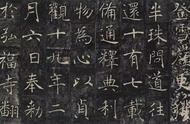 登雪嶺更獲
半珠問道往
還十有七載
備通釋典利
物為心以貞
觀十九年二
月六日奉勅
於弘福寺翻